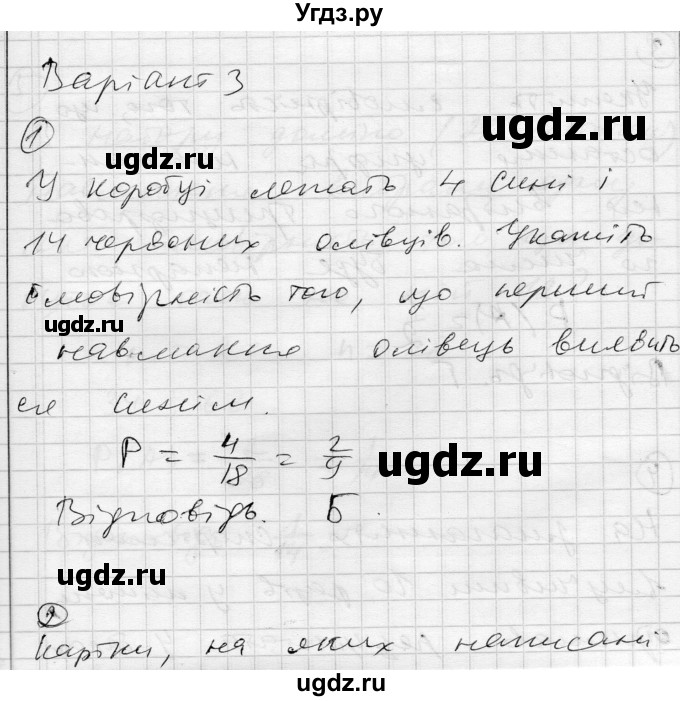 Угдз.ру
Варіант 3
ugdz.ru
1
ugdz.ru
У коробці лежать 4 сині і
14 червоних олівців. Укажіть
ймовірність того, що перший
ugdz.ru
навмання олівець виявить
ся синім.
P = 4/18 = 2/9
ugdz.ru
Відповідь. Б
ugdz.ru
2
Картки, на яких написані
ugdz.ru